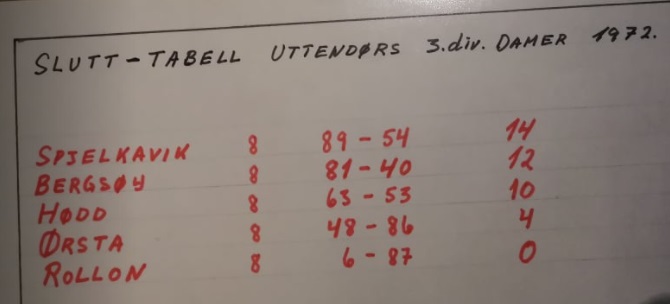 SLUTT-TABELL UTTENDØRS 3.div. DAMER 1972.
SPJELKAVIK 8 89-54 14
BERGSØY 8 81-40 12
HØDD 8 63-53 10
ØRSTA 8 48-86 4
ROLLON 8 6-87 0